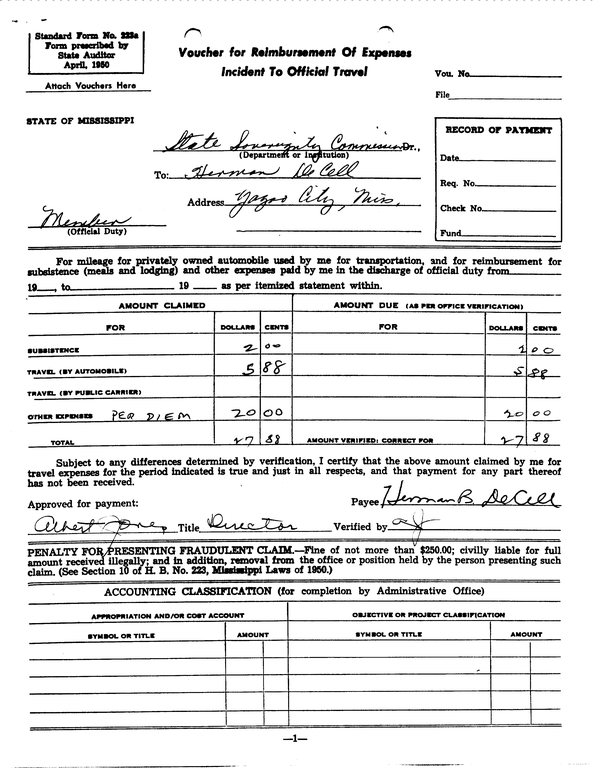 Standard Form No. 223a
Form prescribed by
State Auditor
April, 1950
Attach Vouchers Here
Voucher for Reimbursement Of Expenses
Incident To Official Travel
Vou. No.
File
STATE OF MISSISSIPPI
State Sovereignty Commission Dr.,
(Department or Institution)
To: Herman DeCell
Address Yazoo City, Miss.
Member
(Official Duty)
RECORD OF PAYMENT
Date
Req. No.
Check No.
Fund
For mileage for privately owned automobile used by me for transportation, and for reimbursement for
subsistence (meals and lodging) and other expenses paid by me in the discharge of official duty from
19 , to 19 as per itemized statement within.
AMOUNT CLAIMED AMOUNT DUE (AS PER OFFICE VERIFICATION)
FOR DOLLARS CENTS FOR DOLLARS CENTS
SUBSISTENCE 2 00 00
TRAVEL (BY AUTOMOBILE) 5 88 5 88
TRAVEL (BY PUBLIC CARRIER)
OTHER EXPENSES PER DIEM 20 00 20 00
TOTAL 27 88 AMOUNT VERIFIED: CORRECT FOR 27 88
Subject to any differences determined by verification, I certify that the above amount claimed by me for
travel expenses for the period indicated is true and just in all respects, and that payment for any part thereof
has not been received.
Payee Herman B. DeCell
Approved for payment:
Albert Jones Title Director Verified by aj
PENALTY FOR PRESENTING FRAUDULENT CLAIM.—Fine of not more than $250.00; civilly liable for full
amount received illegally; and in addition, removal from the office or position held by the person presenting such
claim. (See Section 10 of H. B. No. 223, Mississippi Laws of 1950.)
ACCOUNTING CLASSIFICATION (for completion by Administrative Office)
APPROPRIATION AND/OR COST ACCOUNT OBJECTIVE OR PROJECT CLASSIFICATION
SYMBOL OR TITLE AMOUNT SYMBOL OR TITLE AMOUNT
—1—